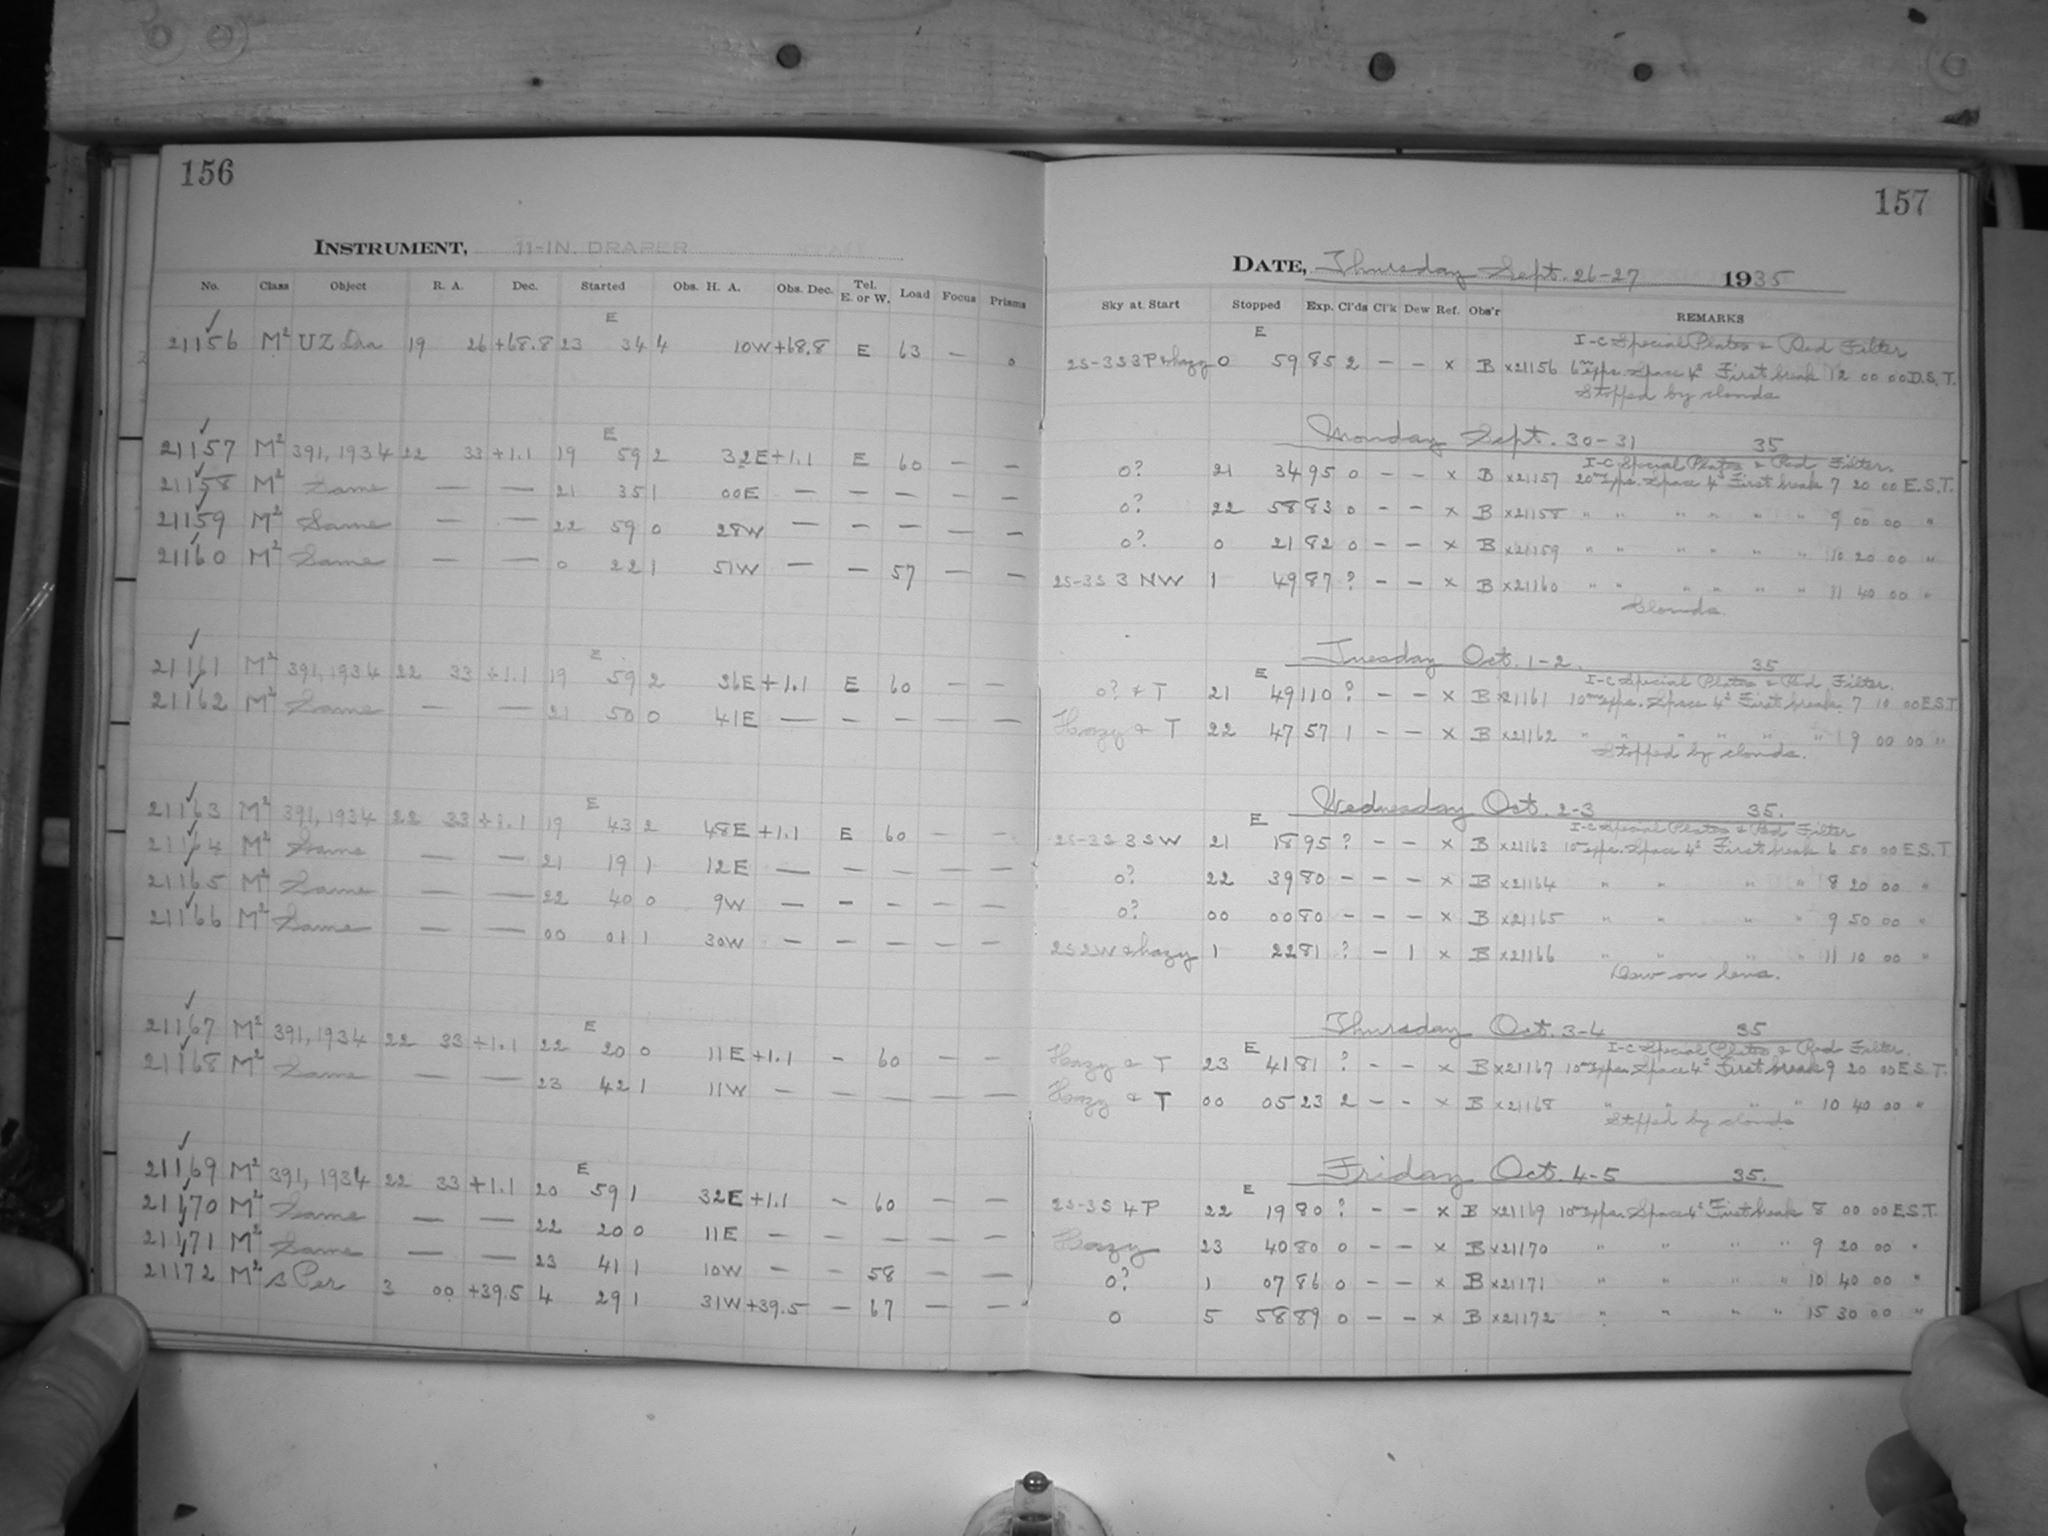 156
INSTRUMENT, 11-IN. DRAPER
No. Class Object R. A. Dec. Started Obs. H. A. Obs. Dec. Tel. E. or W. Load Focus Prisms
E
21156 M² UZ Dra 19 26 +68.8 23 34 4 10W +68.8 E 63 — 0
E
21157 M² 391, 1934 22 33 +1.1 19 59 2 32E +1.1 E 60 — —
21158 M² Same — — 21 35 1 00E — — — — —
21159 M² Same — — 22 59 0 28W — — — — —
21160 M² Same — — 0 22 1 51W — — 57 — —
E
21161 M² 391, 1934 22 33 +1.1 19 59 2 36E +1.1 E 60 — —
21162 M² Same — — 21 50 0 41E — — — — —
E
21163 M² 391, 1934 22 33 +1.1 19 43 2 48E +1.1 E 60 — —
21164 M² Same — — 21 19 1 12E — — — — —
21165 M² Same — — 22 40 0 9W — — — — —
21166 M² Same — — 00 01 1 30W — — — — —
E
21167 M² 391, 1934 22 33 +1.1 22 20 0 11E +1.1 — 60 — —
21168 M² Same — — 23 42 1 11W — — — — —
E
21169 M² 391, 1934 22 33 +1.1 20 59 1 32E +1.1 — 60 — —
21170 M² Same — — 22 20 0 11E — — — — —
21171 M² Same — — 23 41 1 10W — — 58 — —
21172 M² s Per 3 00 +39.5 4 29 1 31W +39.5 — 67 — —
157
DATE, Thursday Sept. 26-27 1935
Sky at Start Stopped Exp. Cl'ds Cl'k Dew Ref. Obs'r REMARKS
E I-C Special Plates & Red Filter
2S-3S3P & hazy 0 59 85 2 — — x B x21156 6m exps. Space 4s First break 12 00 00 D.S.T.
Stopped by clouds
Monday Sept. 30-31 35
I-C Special Plates & Red Filter.
0? 21 34 95 0 — — x B x21157 20m exps. Space 4s First break 7 20 00 E.S.T.
0? 22 58 83 0 — — x B x21158 " " " " " " 9 00 00 "
0? 0 21 82 0 — — x B x21159 " " " " " " 10 20 00 "
2S-3S 3 NW 1 49 87 ? — — x B x21160 " " " " " " 11 40 00 "
Clouds.
Tuesday Oct. 1-2. 35
E I-C Special Plates & Red Filter.
0? & T 21 49 110 ? — — x B x21161 10m exps. Space 4s First break 7 10 00 E.S.T.
Hazy & T 22 47 57 1 — — x B x21162 " " " " " " 9 00 00 "
Stopped by clouds.
Wednesday Oct. 2-3 35.
E I-C Special Plates & Red Filter
2S-3S 3 SW 21 18 95 ? — — x B x21163 10m exps. Space 4s First break 6 50 00 E.S.T.
0? 22 39 80 — — — x B x21164 " " " " 8 20 00 "
0? 00 00 80 — — — x B x21165 " " " " 9 50 00 "
2S 2W & hazy 1 22 81 ? — 1 x B x21166 " " " " 11 10 00 "
Dew on lens.
Thursday Oct. 3-4 35
E I-C Special Plates & Red Filter.
Hazy & T 23 41 81 ? — — x B x21167 10m exps. Space 4s First break 9 20 00 E.S.T.
Hazy & T 00 05 23 2 — — x B x21168 " " " " 10 40 00 "
Stopped by clouds
Friday Oct. 4-5 35.
E
2S-3S 4 P 22 19 80 ? — — x B x21169 10m exps. Space 4s First break 8 00 00 E.S.T.
Hazy 23 40 80 0 — — x B x21170 " " " " 9 20 00 "
0? 1 07 86 0 — — x B x21171 " " " " 10 40 00 "
0 5 58 89 0 — — x B x21172 " " " " 15 30 00 "